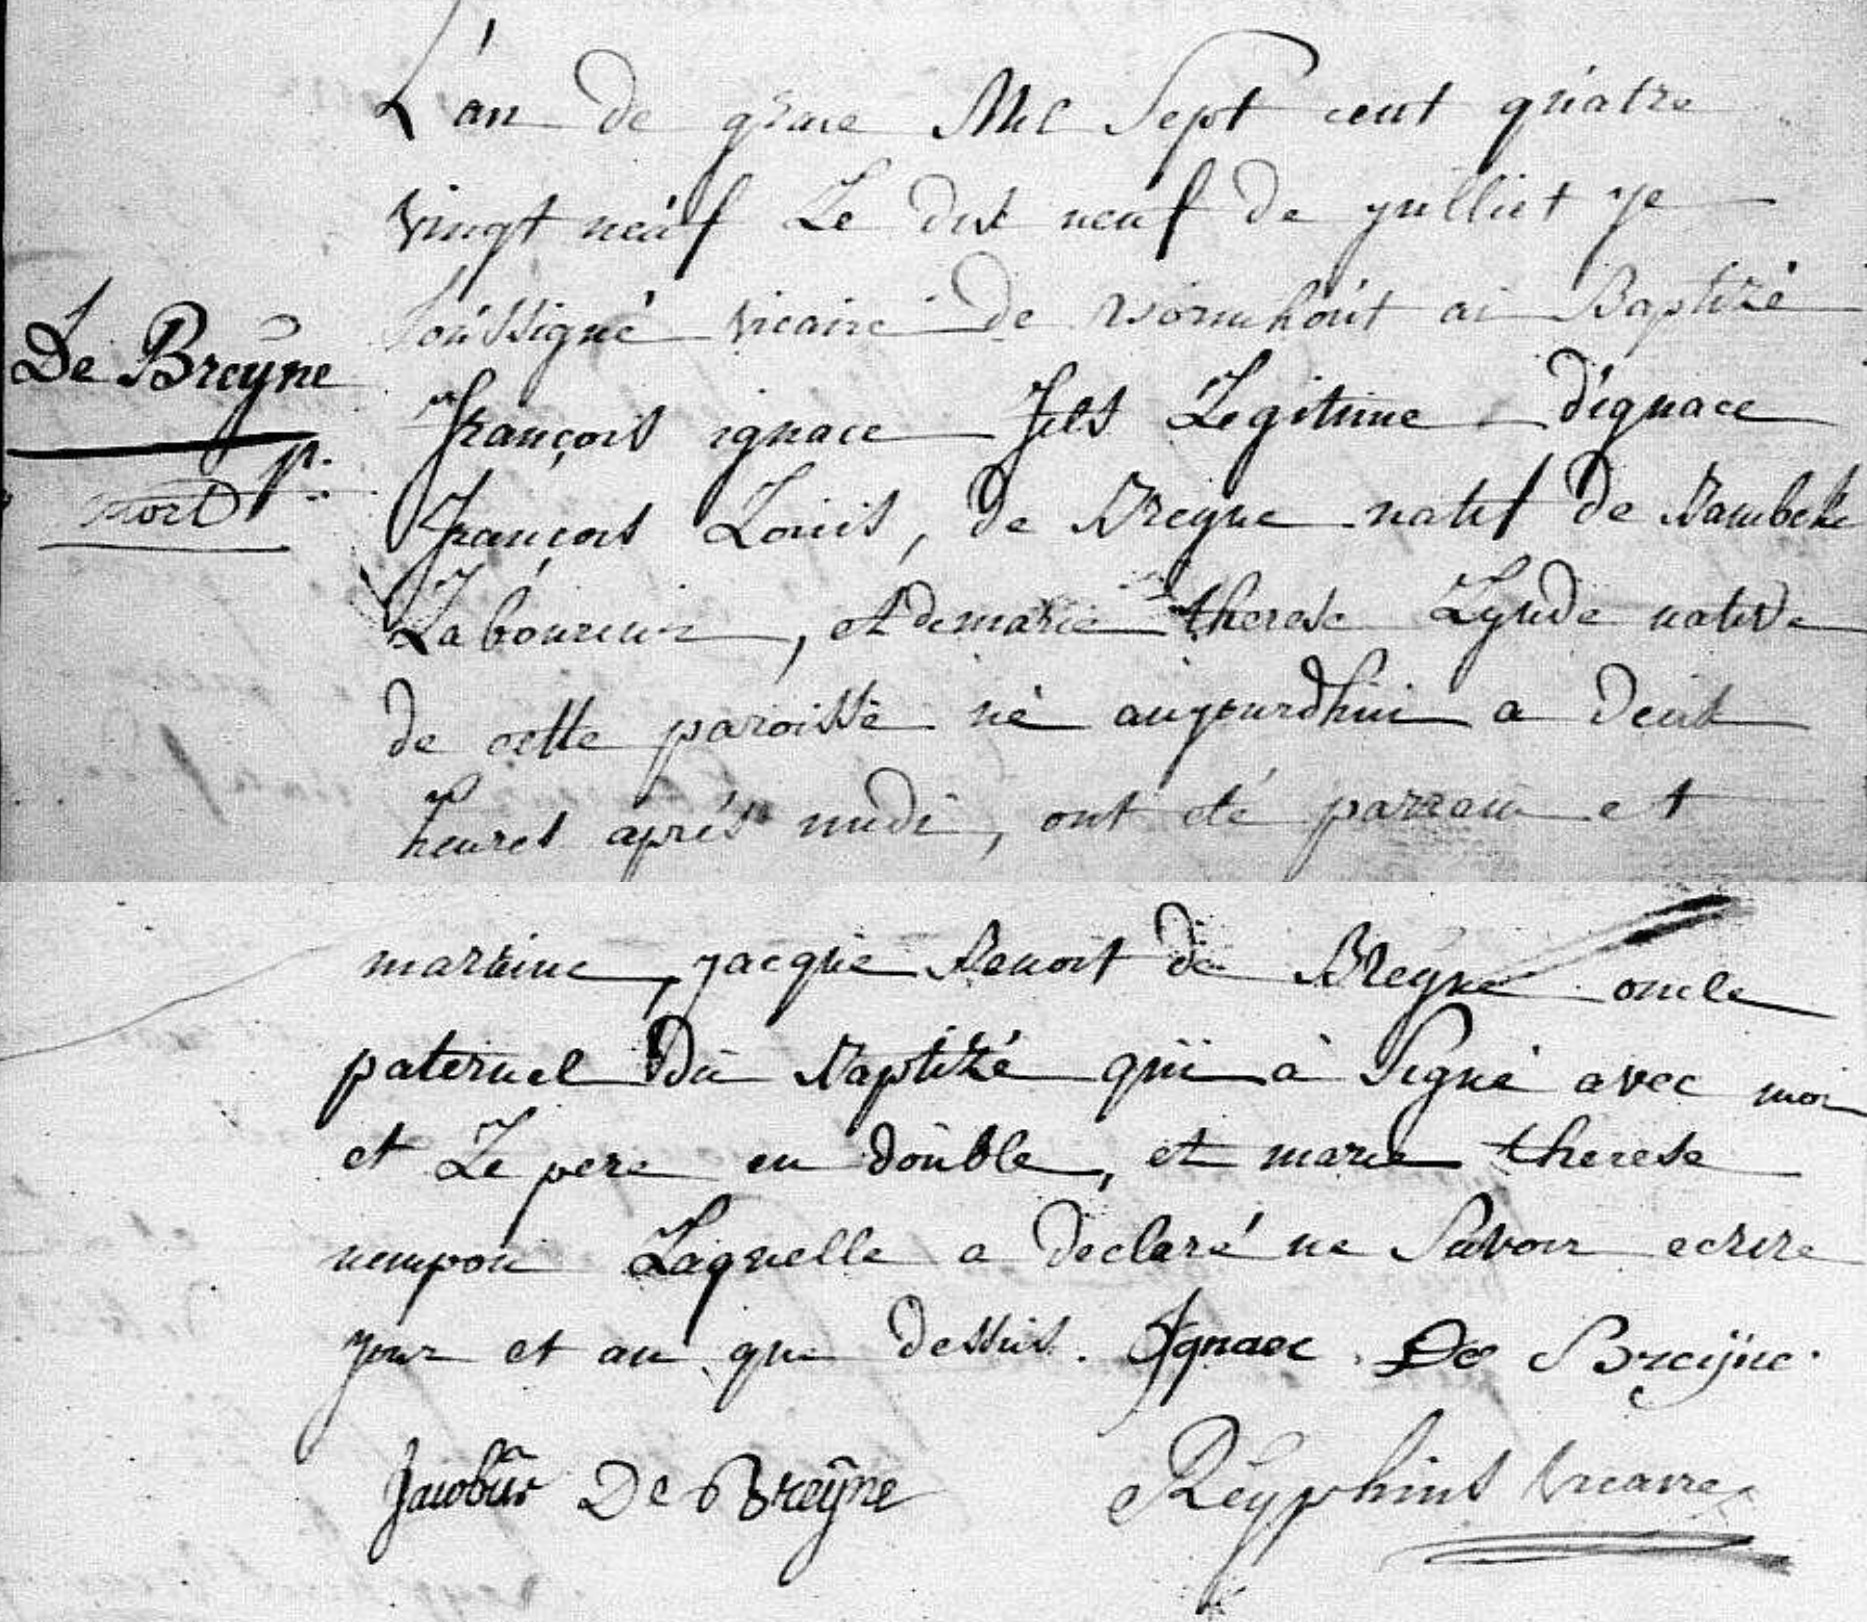 L'an de grace Mil Sept cent quatre
vingt neuf Le dix neuf de juilliet je
Soussigné vicaire de wormhout ai Baptizé
De Breyne
françois ignace fils Legitime d'ignace
p.
mort
françois Louis, de Breyne natif de Bambeke
Laboureur, et de marie therese Lynde native
de cette paroisse né aujourdhui a deux
heures aprés midi, ont eté parrein et
marreine, jacque Benoit de Breyne oncle
paternel du Baptizé qui à Signé avec moi
et Le pere en double, et marie therese
nempon Laquelle a declaré ne Savoir ecrire
jour et an que dessus. Ignace De Breijne.
Jacobus De Breÿne Reyphins vicaire